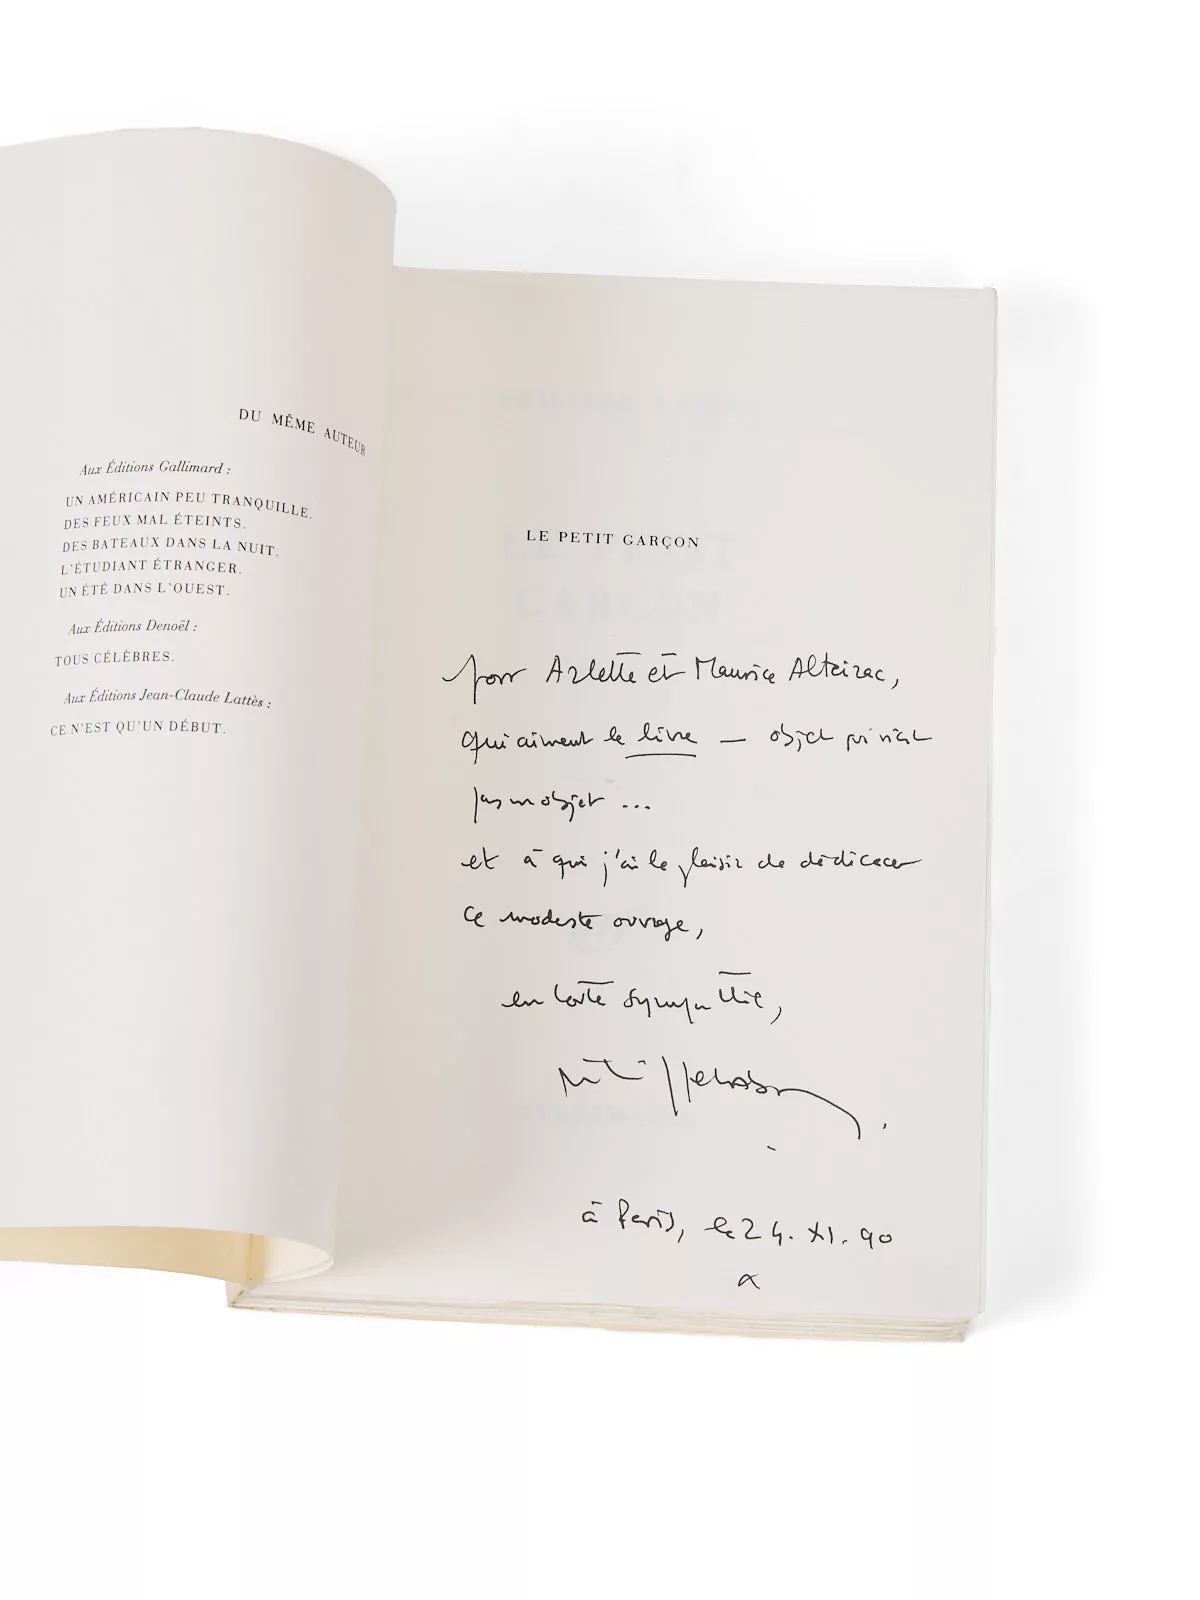 DU MÊME AUTEUR
Aux Éditions Gallimard :
UN AMÉRICAIN PEU TRANQUILLE.
DES FEUX MAL ÉTEINTS.
DES BATEAUX DANS LA NUIT.
L'ÉTUDIANT ÉTRANGER.
UN ÉTÉ DANS L'OUEST.
Aux Éditions Denoël :
TOUS CÉLÈBRES.
Aux Éditions Jean-Claude Lattès :
CE N'EST QU'UN DÉBUT.
LE PETIT GARÇON
pour Arlette et Maurice Alteirac,
qui aiment le livre — objet qui n'est
pas un objet ...
et à qui j'ai le plaisir de dédicacer
ce modeste ouvrage,
en toute sympathie,
à Paris, le 24. XI. 90